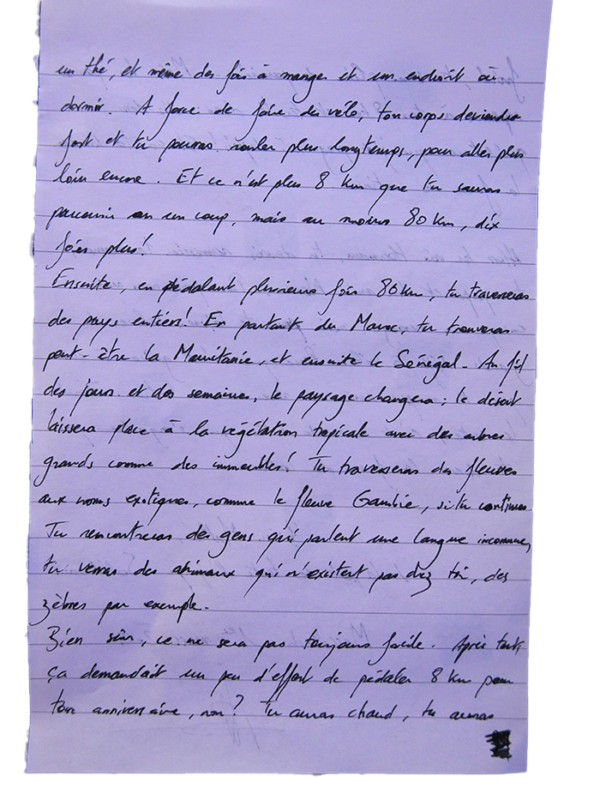 un thé, et même des fois à manger et un endroit où
dormir. A force de faire du vélo, ton corps deviendra
fort et tu pourras rouler plus longtemps, pour aller plus
loin encore. Et ce n'est plus 8 km que tu sauras
parcourir en un coup, mais au moins 80 km, dix
fois plus!
Ensuite, en pédalant plusieurs fois 80 km, tu traverseras
des pays entiers! En partant du Maroc, tu trouveras
peut-être la Mauritanie, et ensuite le Sénégal. Au fil
des jours et des semaines, le paysage changera; le désert
laissera place à la végétation tropicale avec des arbres
grands comme des immeubles! Tu traverseras des fleuves
aux noms exotiques, comme le fleuve Gambie, si tu continues.
Tu rencontreras des gens qui parlent une langue inconnue,
tu verras des animaux qui n'existent pas chez toi, des
zèbres par exemple.
Bien sûr, ce ne sera pas toujours facile. Après tout,
ça demandait un peu d'effort de pédaler 8 km pour
ton anniversaire, non? Tu auras chaud, tu auras